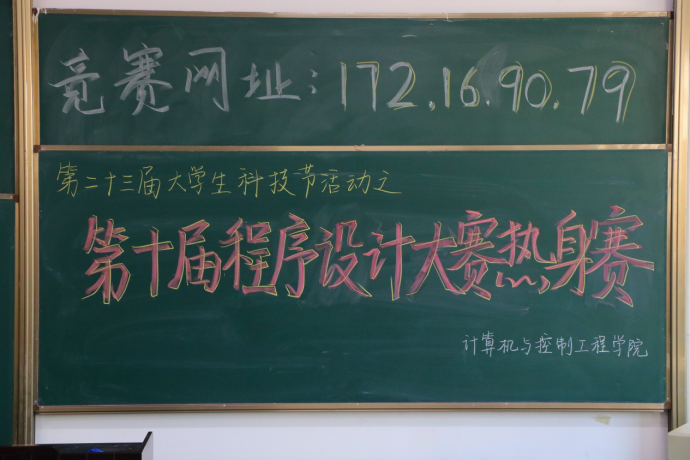 竞赛网址：172.16.90.79
第二十三届大学生科技节活动之
第十届程序设计大赛热身赛
计算机与控制工程学院